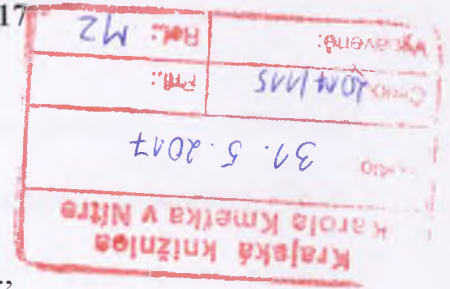 17
Krajská knižnica
Karola Kmeťka v Nitre
31. 5. 2017
Číslo 2017/115 Príl.:
Vybavené: Ref.: MZ